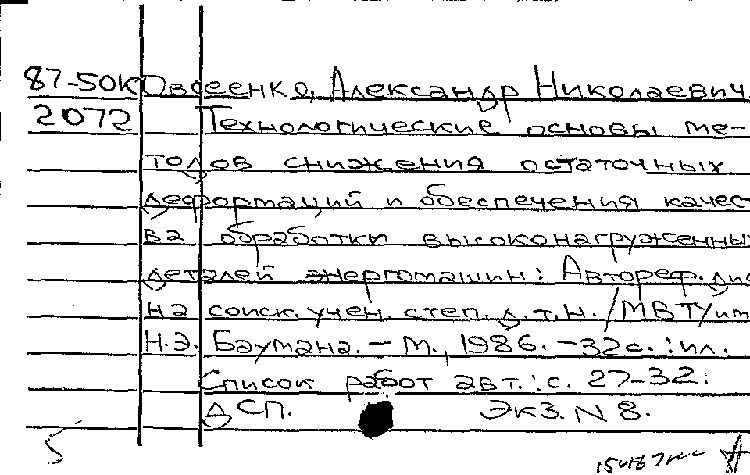 87-50К Овсеенко, Александр Николаевич.
2072 Технологические основы ме-
тодов снижения остаточных
деформаций и обеспечения качес
ва обработки высоконагруженны
деталей энергомашин: Автореф. дис
на соиск. учен. степ. д.т.н. / МВТУ им
Н.Э. Баумана. – М., 1986. – 32с. : ил.
Список работ авт.: с. 27-32.
ДСП. Экз. N 8.
5